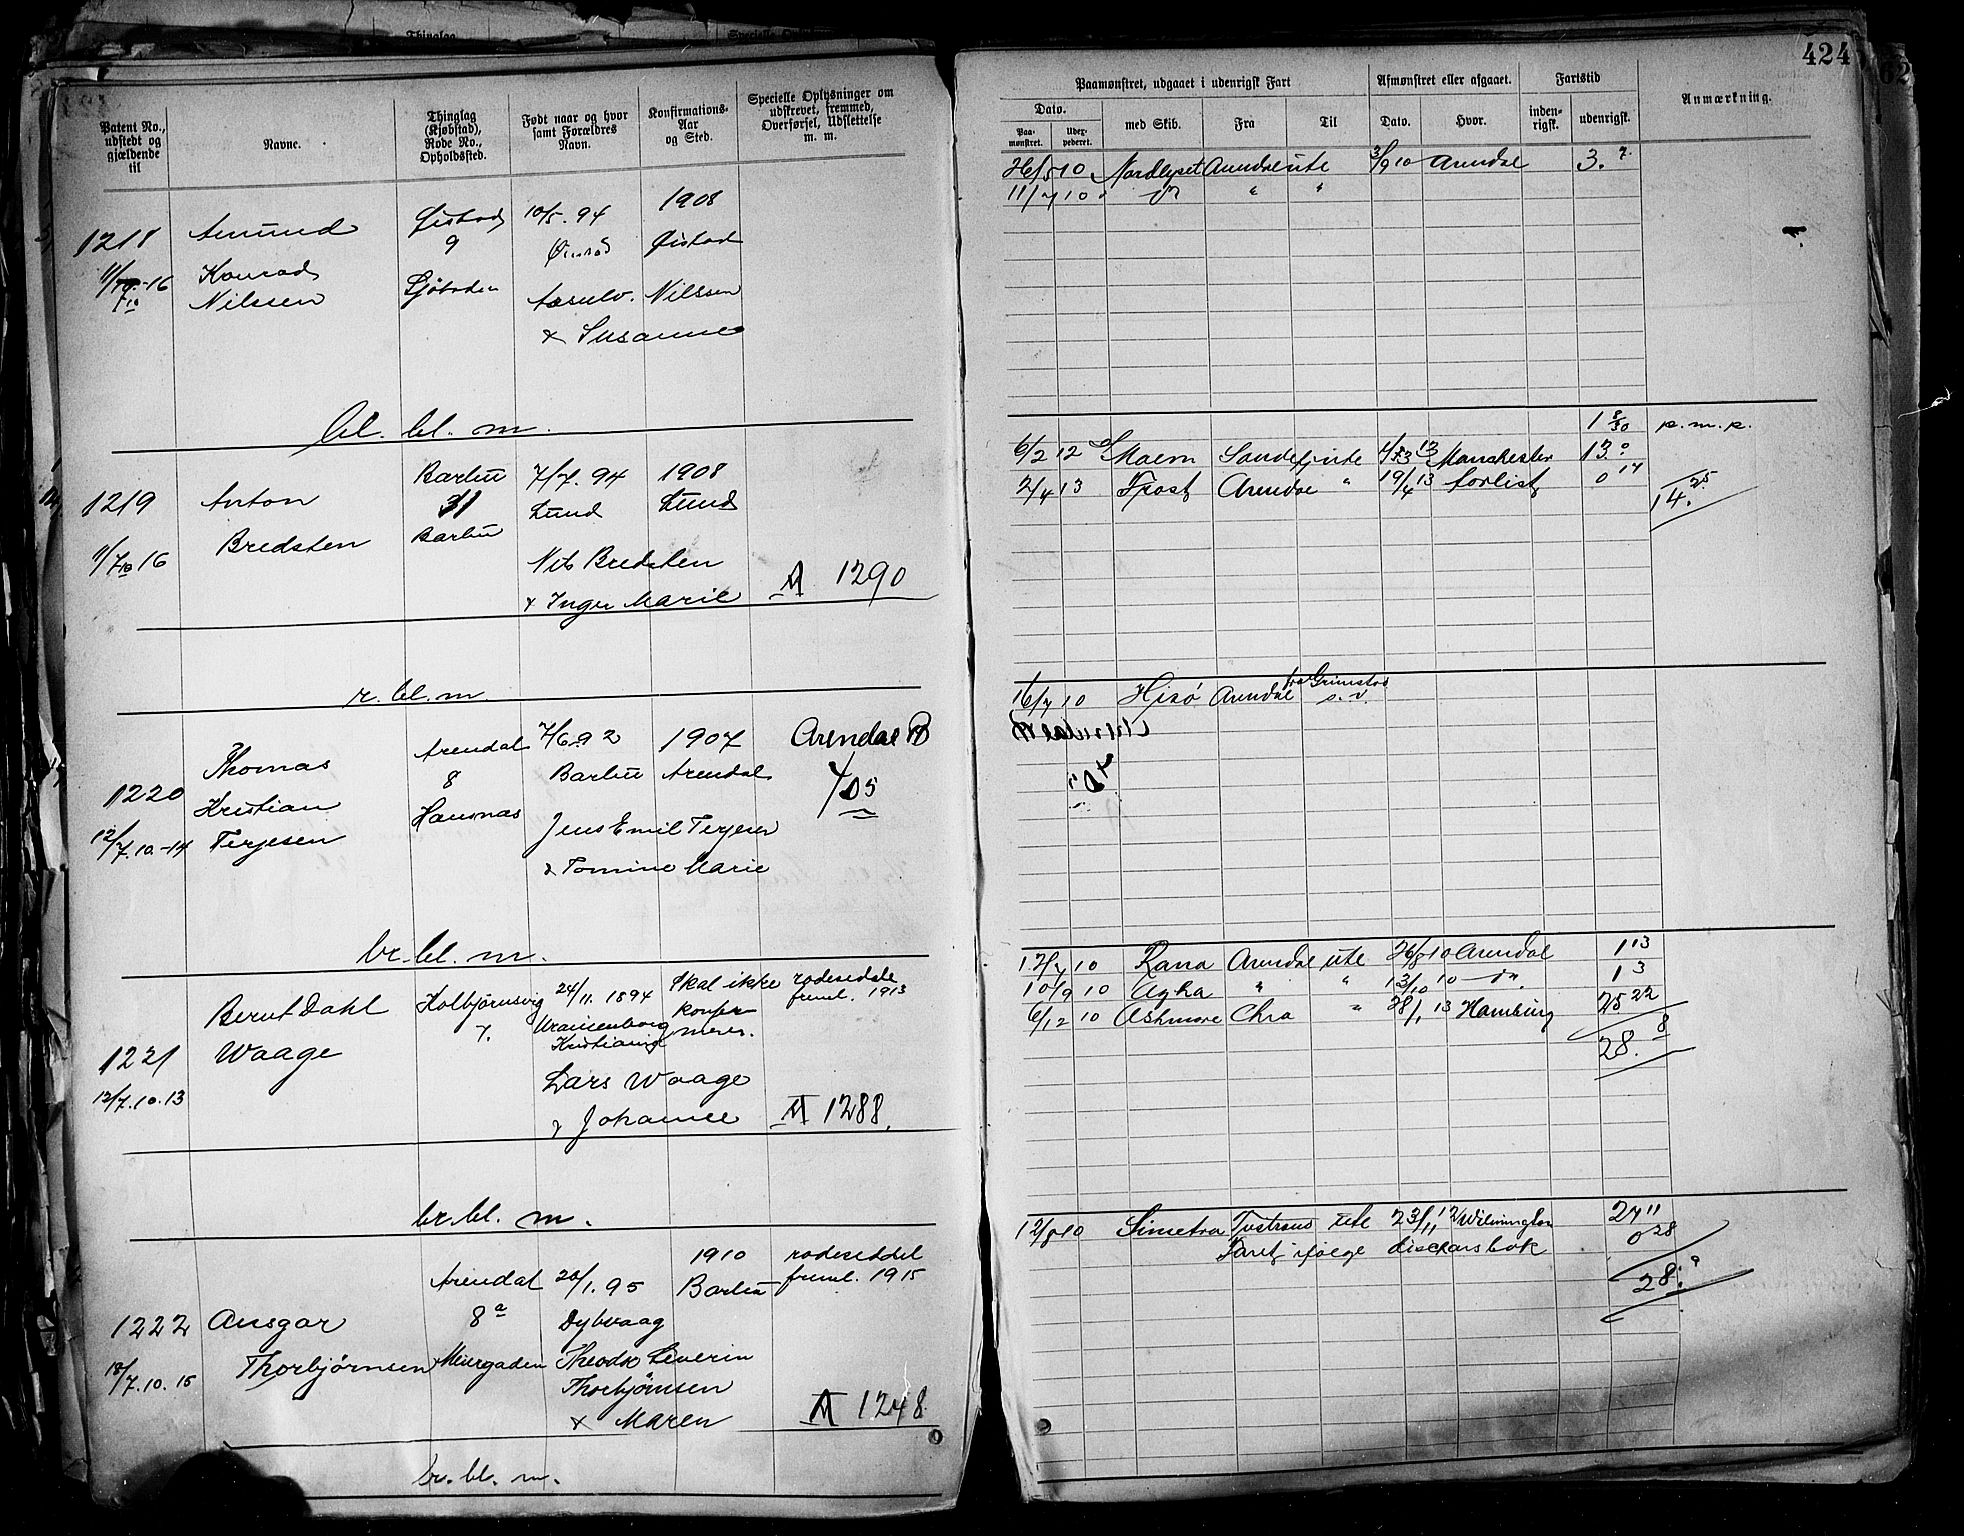 424
Patent No., udstedt og gjældende til
Navne.
Thinglag (Kjøbstad), Rode No., Opholdssted.
Født naar og hvor samt Forældres Navn.
Konfirmations-Aar og Sted.
Specielle Oplysninger om udskrevet, fremmed, Overførsel, Udslettelse m. m.
Paamønstret, udgaaet i udenrigsk Fart
Dato.
Paamønstret.
med Skib.
Fra
Til
Afmønstret eller afgaaet.
Dato.
Hvor.
Fartstid
indenrigsk.
udenrigsk.
Anmærkning.
1218
Amund
Konrad
Nilssen
Øistad
9
10/5. 94
1908
Øistad
Nilssen
& Susanne
bl. bl. m.
26/5 10 Nordlyset Arendal ute 3/9 10 Arendal 3. 7
11/7 10 " "
1219
11/7 10 16
Anton
Bredsten
Barbu
31
Barbu
7/7. 94
Lund
1908
Lund
Nils Bredsten
& Inger Marie
A 1290
r. bl. m.
1 8/30 p. m. p.
6/2 12 Sandefj ute Manchester 13 0
2/4 13 Frost Arendal " 19/4 13 forlist 0 17
14. 25
1220
12/7. 10 - 14
Thomas
Kristian
Terjesen
Arendal
8
Havsnas
7/6 92
Barbu
1907
Arendal
Jens Emil Terjesen
& Tomine Marie
Arendal B
405
br. bl. m.
16/7 10 Hisø Arendal fra Grimstad
s. v.
1221
12/7. 10. 13
Bernt Dahl
Waage
Kolbjørnsvig
7.
24/11. 1894
Uranienborg
Kristiania
Skal ikke
konfir
meres.
rodeseddel
freml. 1913
Lars Waage
& Johanne
A 1288.
br. bl. m.
12/7 10 Rana Arendal ute 26/8 10 Arendal 1 13
10/9 10 Agha " " 13/10 10 1 3
6/12 10 Ashmore Chra " 28/1 13 Hamburg 25 22
28. 8
1222
18/7. 10. 15
Ansgar
Thorbjørnsen
Arendal
8 a
Meiergaden
20/1. 95
Dybvaag
1910
Barbu
rodeseddel
freml. 1915
Theodor Severin
Thorbjørnsen
& Maren
A 1248
br. bl. m.
12/8 10 Simetra ute 23/11 12 Wilmington 27 11
Fart ifølge discharsbok 0 28
28. 9